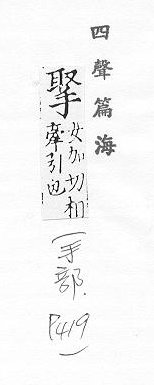 四聲篇海
女加切相
牽引也
(手部.
P419)